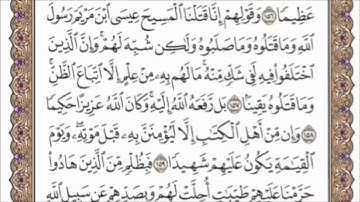 عَظِيمًا ١٥٦ وَقَوْلِهِمْ إِنَّا قَتَلْنَا ٱلْمَسِيحَ عِيسَى ٱبْنَ مَرْيَمَ رَسُولَ
ٱللَّهِ وَمَا قَتَلُوهُ وَمَا صَلَبُوهُ وَلَٰكِن شُبِّهَ لَهُمْ وَإِنَّ ٱلَّذِينَ
ٱخْتَلَفُوا۟ فِيهِ لَفِى شَكٍّ مِّنْهُ مَا لَهُم بِهِۦ مِنْ عِلْمٍ إِلَّا ٱتِّبَاعَ ٱلظَّنِّ
وَمَا قَتَلُوهُ يَقِينًۢا ١٥٧ بَل رَّفَعَهُ ٱللَّهُ إِلَيْهِ وَكَانَ ٱللَّهُ عَزِيزًا حَكِيمًا
١٥٨ وَإِن مِّنْ أَهْلِ ٱلْكِتَٰبِ إِلَّا لَيُؤْمِنَنَّ بِهِۦ قَبْلَ مَوْتِهِۦ وَيَوْمَ
ٱلْقِيَٰمَةِ يَكُونُ عَلَيْهِمْ شَهِيدًا ١٥٩ فَبِظُلْمٍ مِّنَ ٱلَّذِينَ هَادُوا۟
حَرَّمْنَا عَلَيْهِمْ طَيِّبَٰتٍ أُحِلَّتْ لَهُمْ وَبِصَدِّهِمْ عَن سَبِيلِ ٱللَّهِ